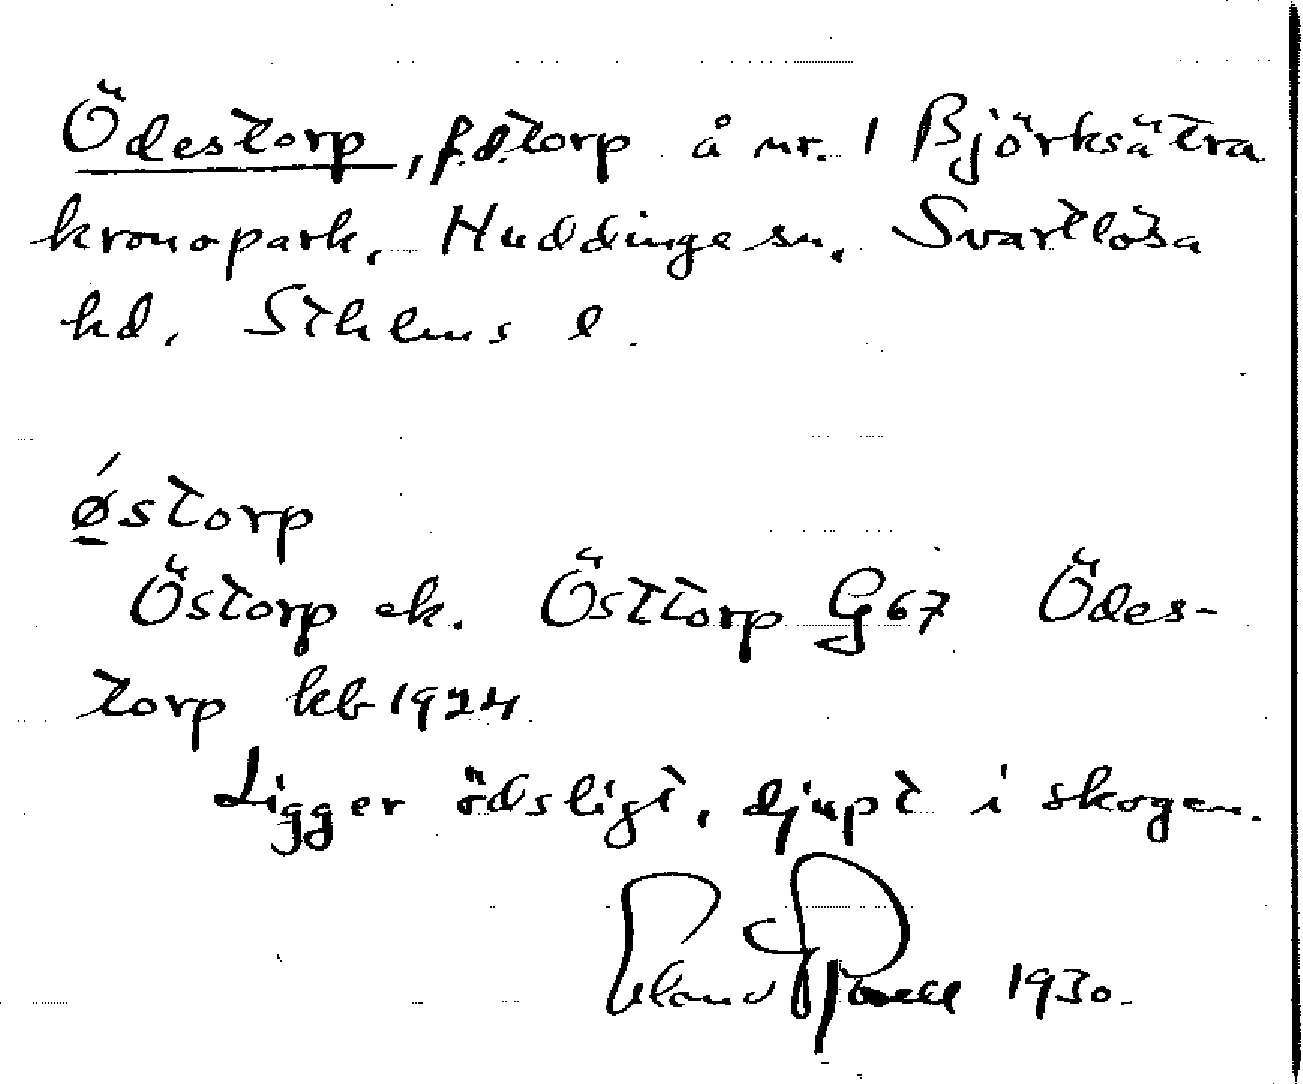 Ödestorp, f.d. torp å nr. 1 Björksätra
kronopark, Huddinge sn, Svartlösa
hd, Sthlms l.
ǿstorp
Östorp ek. Östtorp G67 Ödes-
torp kb 1924
Ligger ödsligt, djupt i skogen.
1930.